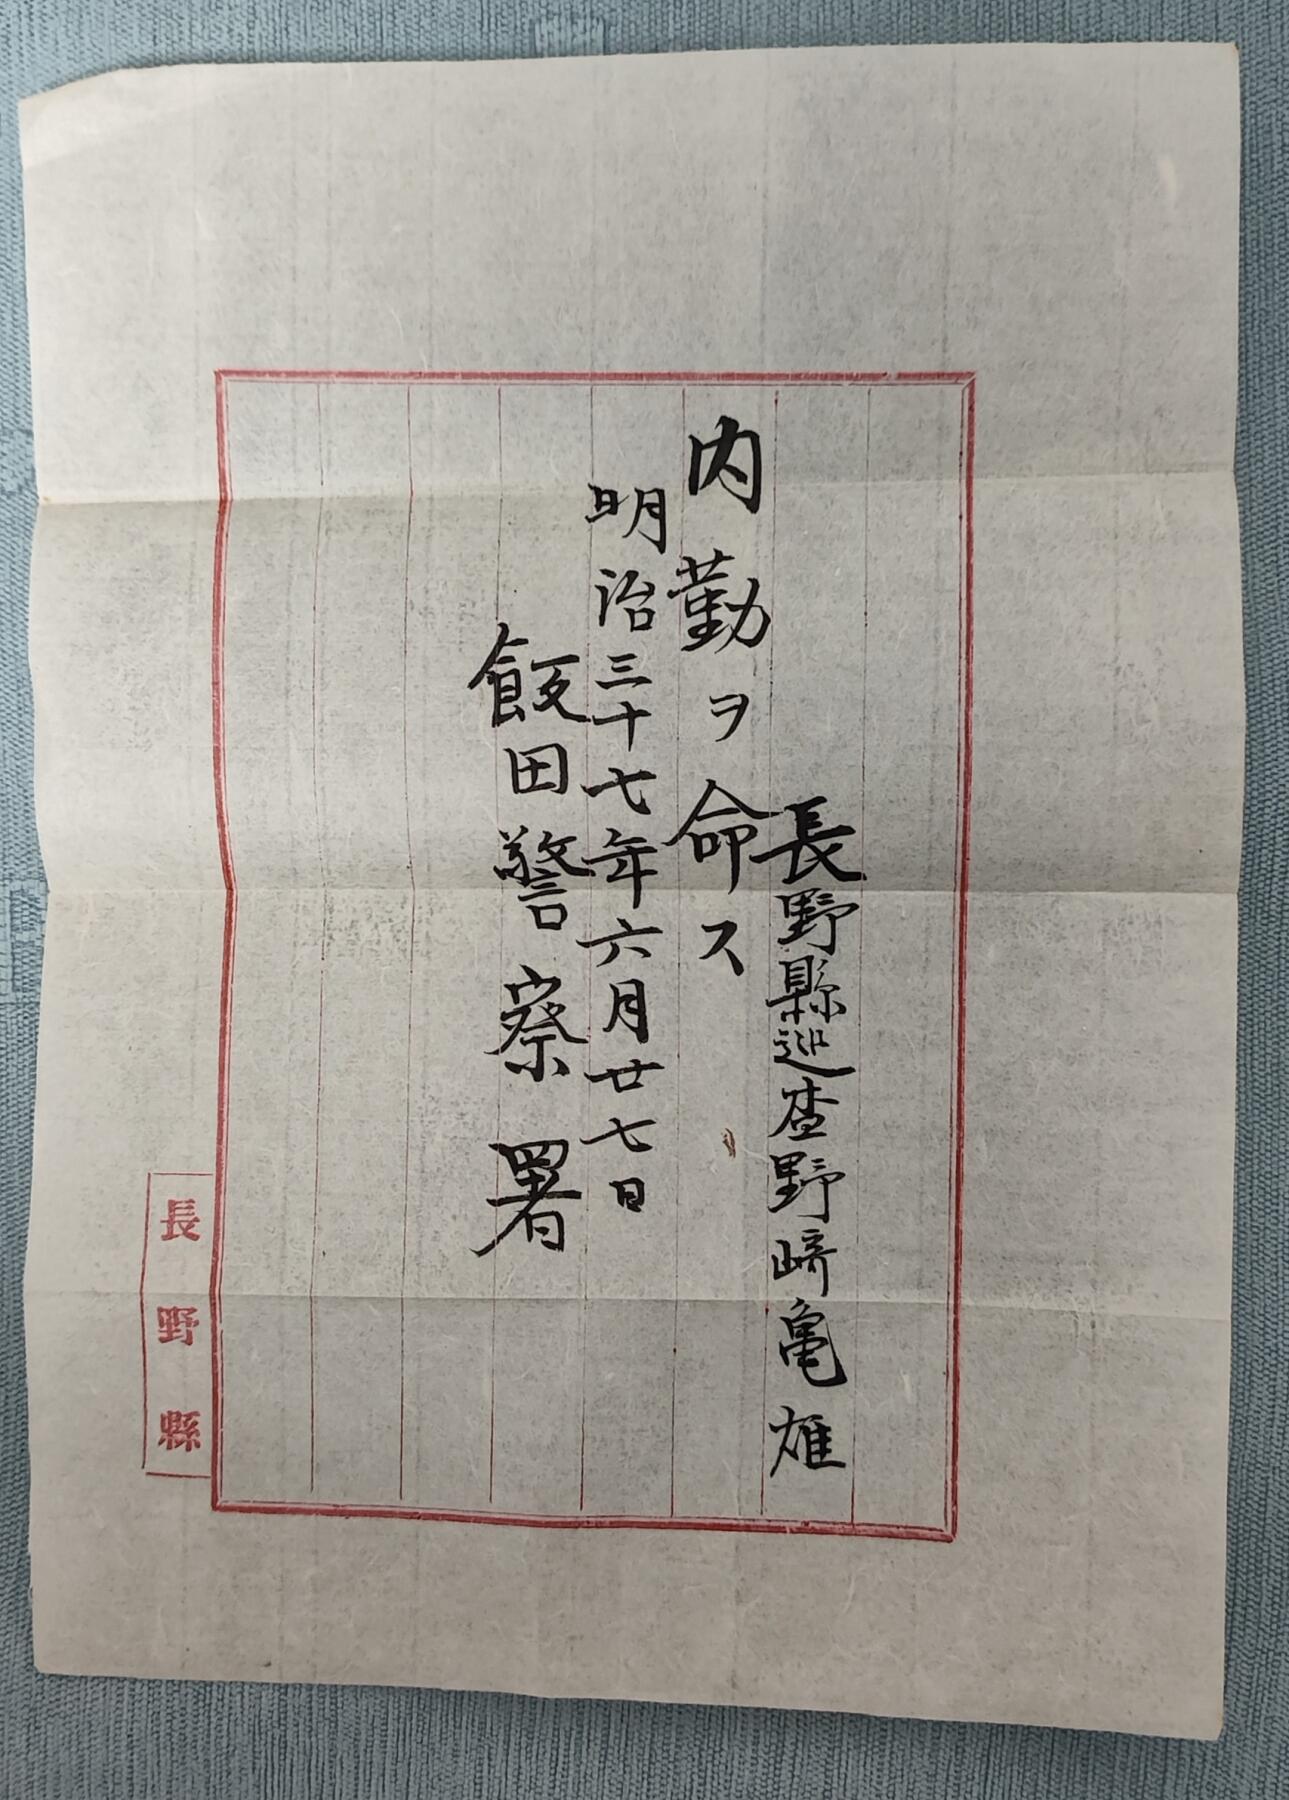 長野縣巡査野崎亀雄
内勤ヲ命ス
明治三十七年六月廿七日
飯田警察署
長野縣